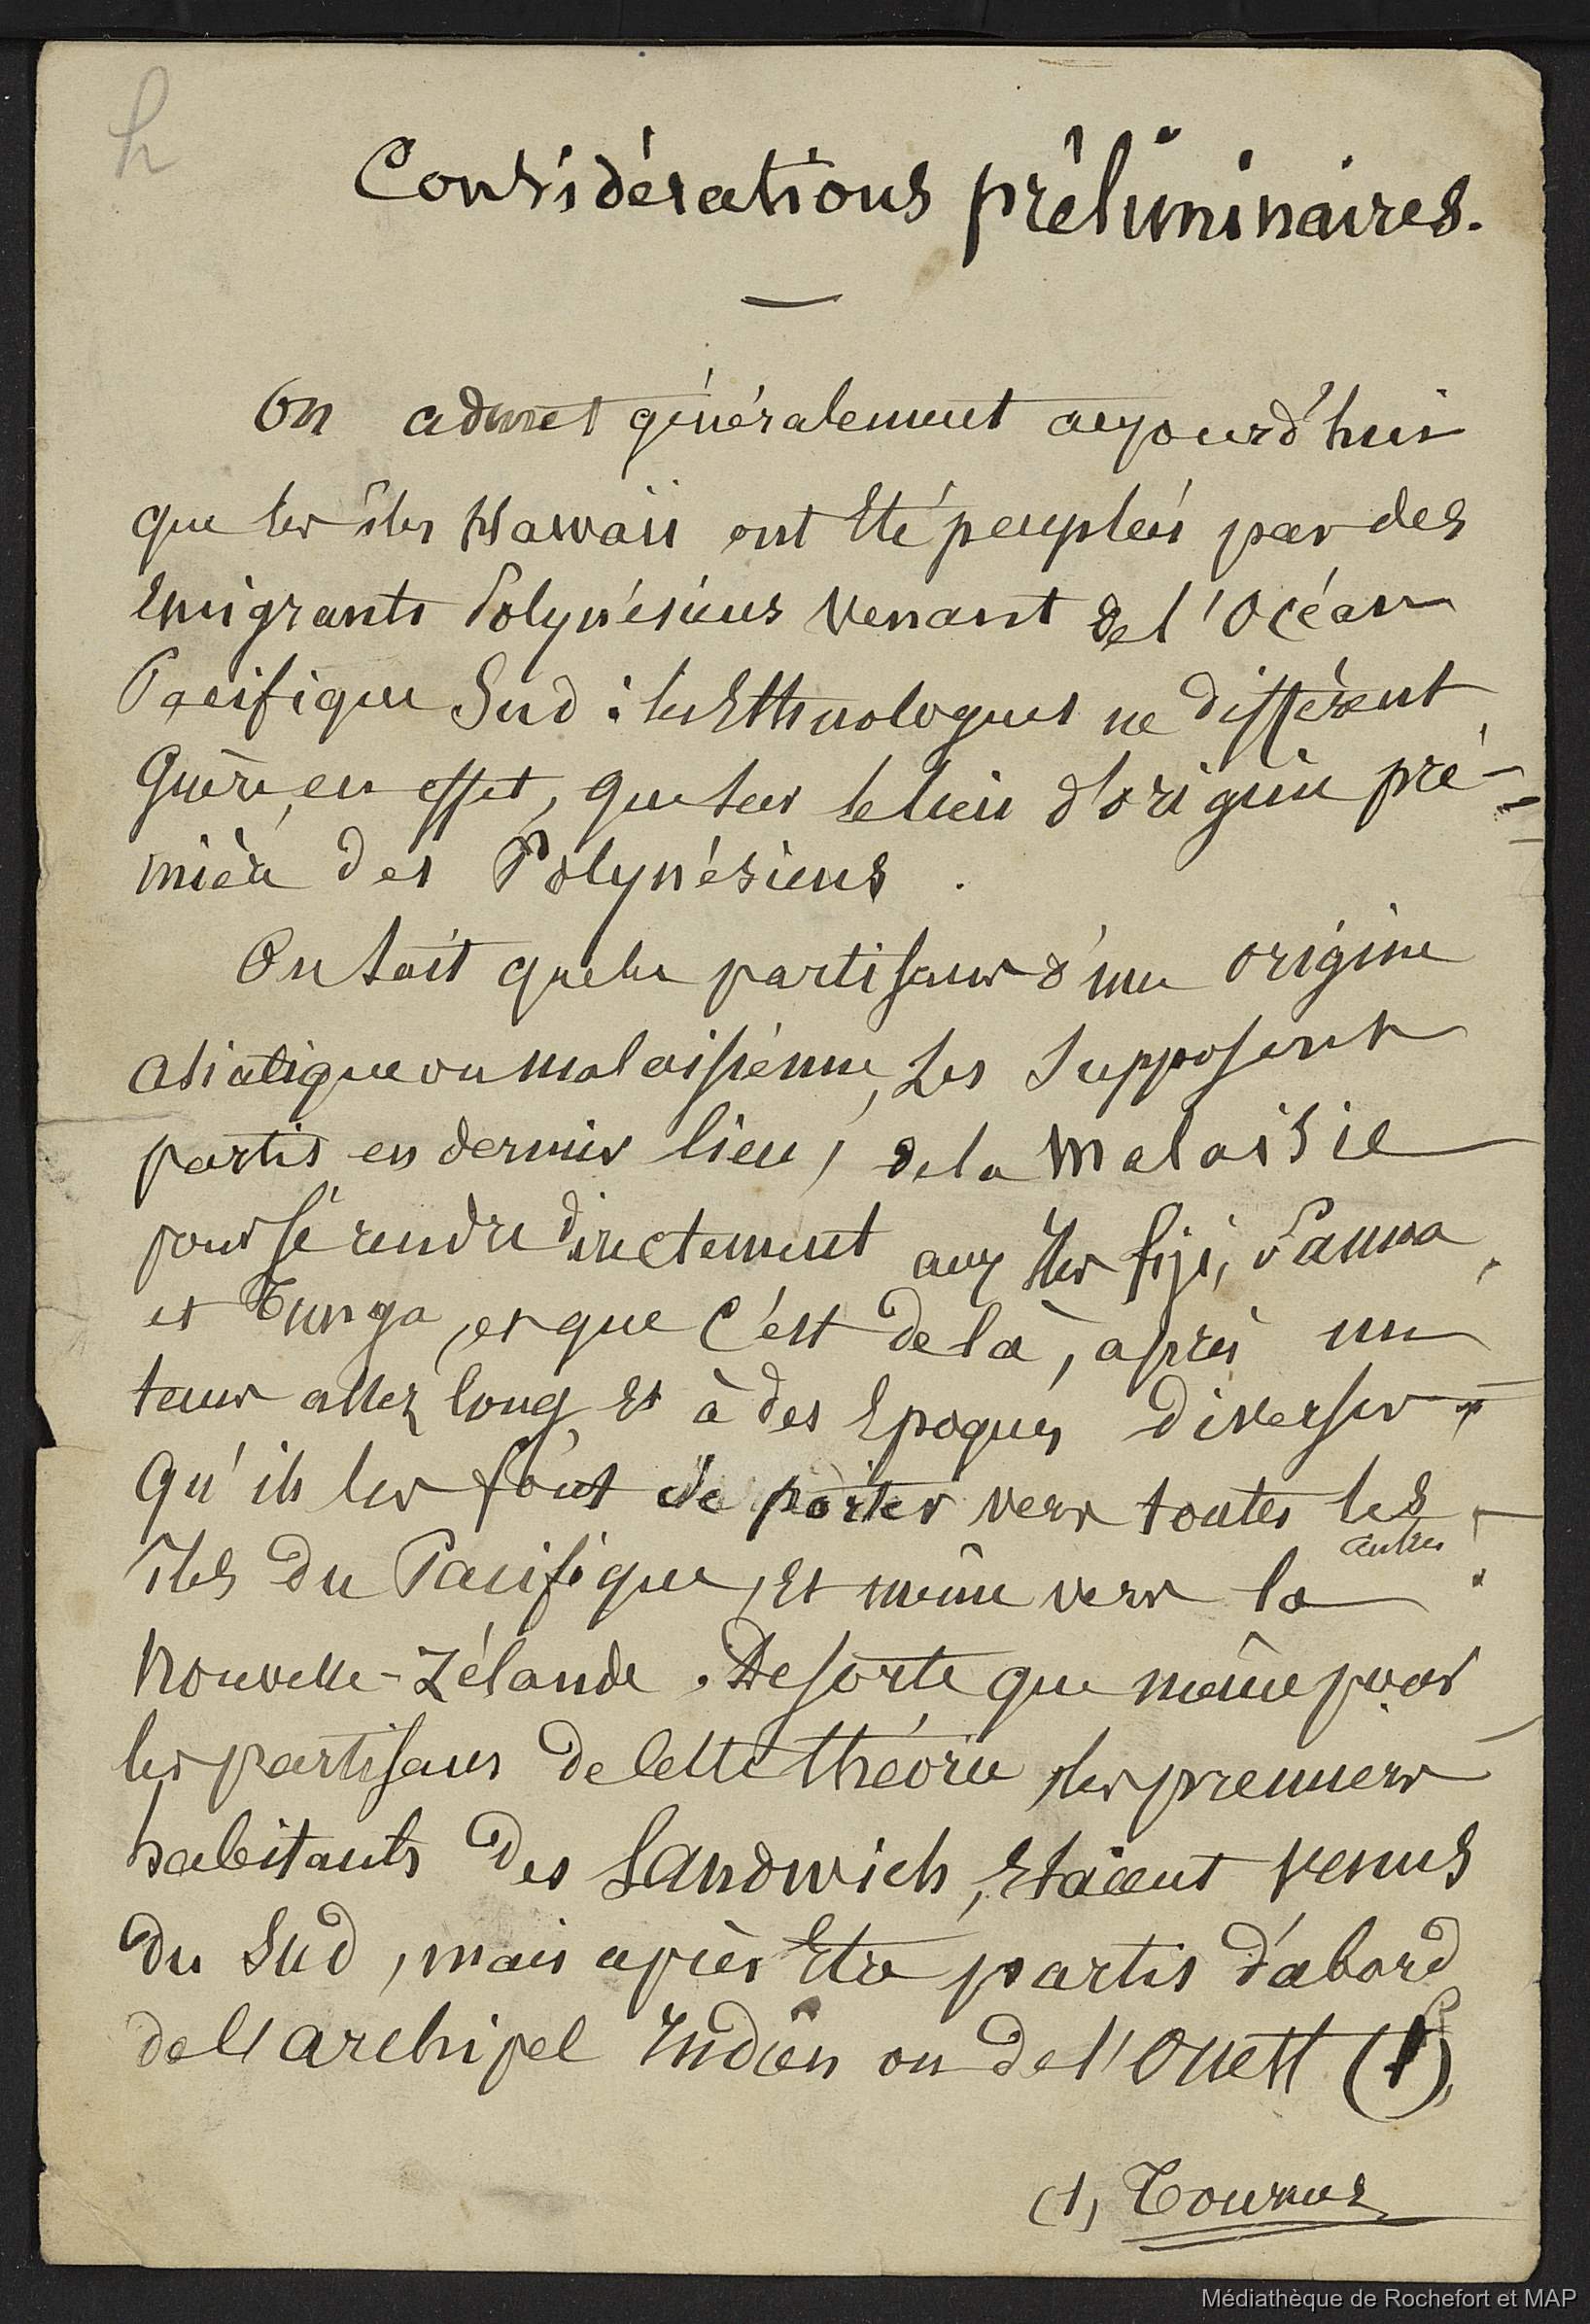 h
Considérations préliminaires.
On admet généralement aujourd'hui
que les îles Hawaii ont Eté peuplées par des
Emigrants Polynésiens venant de l'Océan
Pacifique Sud : les Ethnologues ne diffèrent
Guère, en effet, que sur le lieu d'origine pre-
mière des Polynésiens.
On sait que les partisans d'une origine
asiatique ou malaisienne, les supposent
partis en dernier lieu, de la Malaisie
pour se rendre directement aux Iles fiji, Samoa
et Tunga, et que c'est de là, après un
tems assez long, Et à des Epoques diverses
Qu'ils les font se porter vers toutes les
autres
îles du Pacifique, Et même vers la
Nouvelle-Zélande. De sorte que même pour
les partisans de cette théorie, les premiers
habitants des Sandwich, Etaient venus
du Sud, mais après Etre partis d'abord
de l'archipel Indien ou de l'Ouest (1),
(1)
Médiathèque de Rochefort et MAP